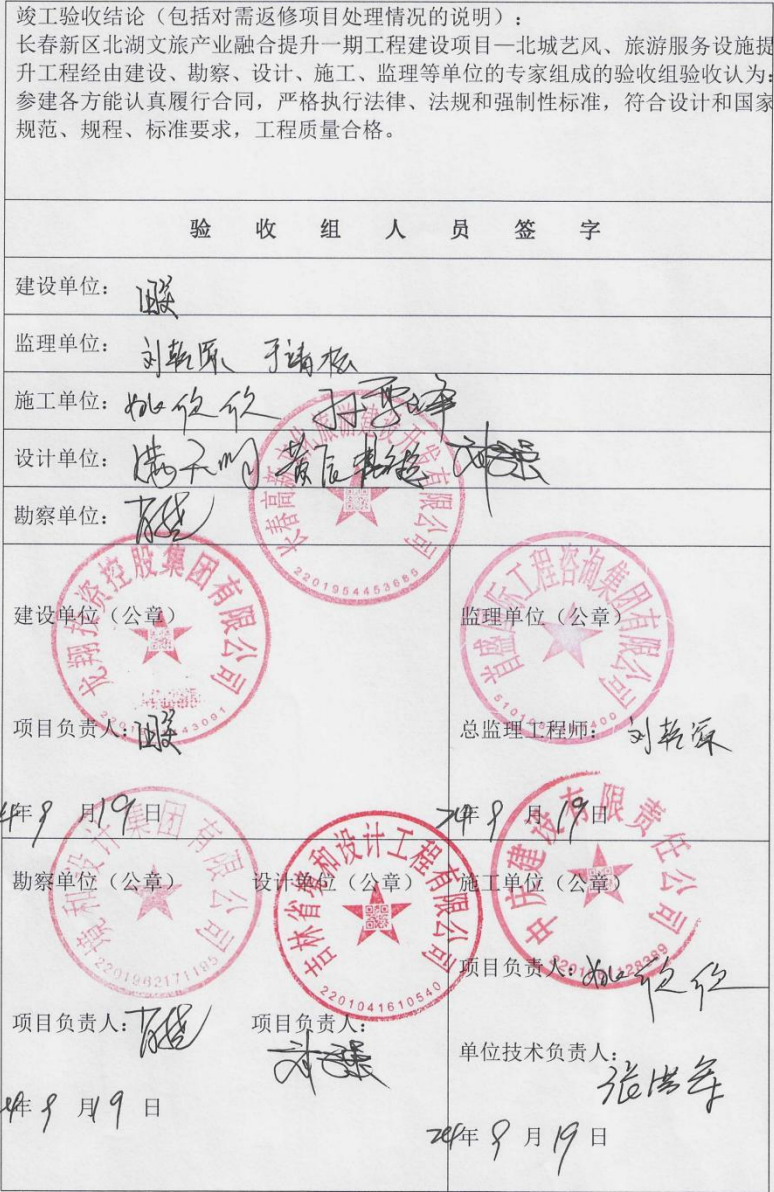 竣工验收结论（包括对需返修项目处理情况的说明）：
长春新区北湖文旅产业融合提升一期工程建设项目—北城艺风、旅游服务设施提
升工程经由建设、勘察、设计、施工、监理等单位的专家组成的验收组验收认为：
参建各方能认真履行合同，严格执行法律、法规和强制性标准，符合设计和国家
规范、规程、标准要求，工程质量合格。
验 收 组 人 员 签 字
建设单位：
监理单位： 刘乾源 于靖松
施工单位： 姚欣欣
设计单位：
勘察单位：
长春高新文业旅游建设开发有限公司
2201954453685
建设单位（公章）
龙翔投资控股集团有限公司
项目负责人：
年 9 月 19 日
监理单位（公章）
首盛国际工程咨询集团有限公司
总监理工程师： 刘乾源
24年 9 月 19 日
勘察单位（公章）
境和设计集团有限公司
2201962171185
项目负责人：
年 9 月 19 日
设计单位（公章）
吉林省境和设计工程有限公司
2201041610540
项目负责人：
施工单位（公章）
中庆建设有限责任公司
项目负责人： 姚欣欣
单位技术负责人： 张洪军
24年 9 月 19 日